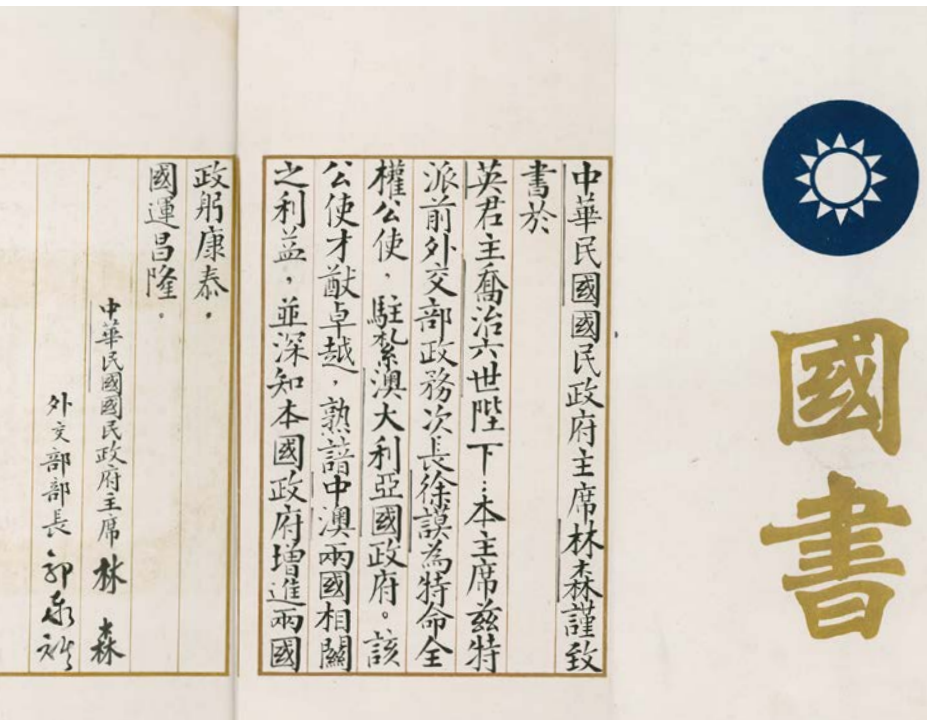 國書
中華民國國民政府主席林森謹致
書於
英君主喬治六世陛下：本主席兹特
派前外交部政務次長徐謨為特命全
權公使，駐紮澳大利亞國政府。該
公使才猷卓越，熟諳中澳兩國相關
之利益，並深知本國政府增進兩國
政躬康泰，
國運昌隆。
中華民國國民政府主席林森
外交部部長郭泰祺